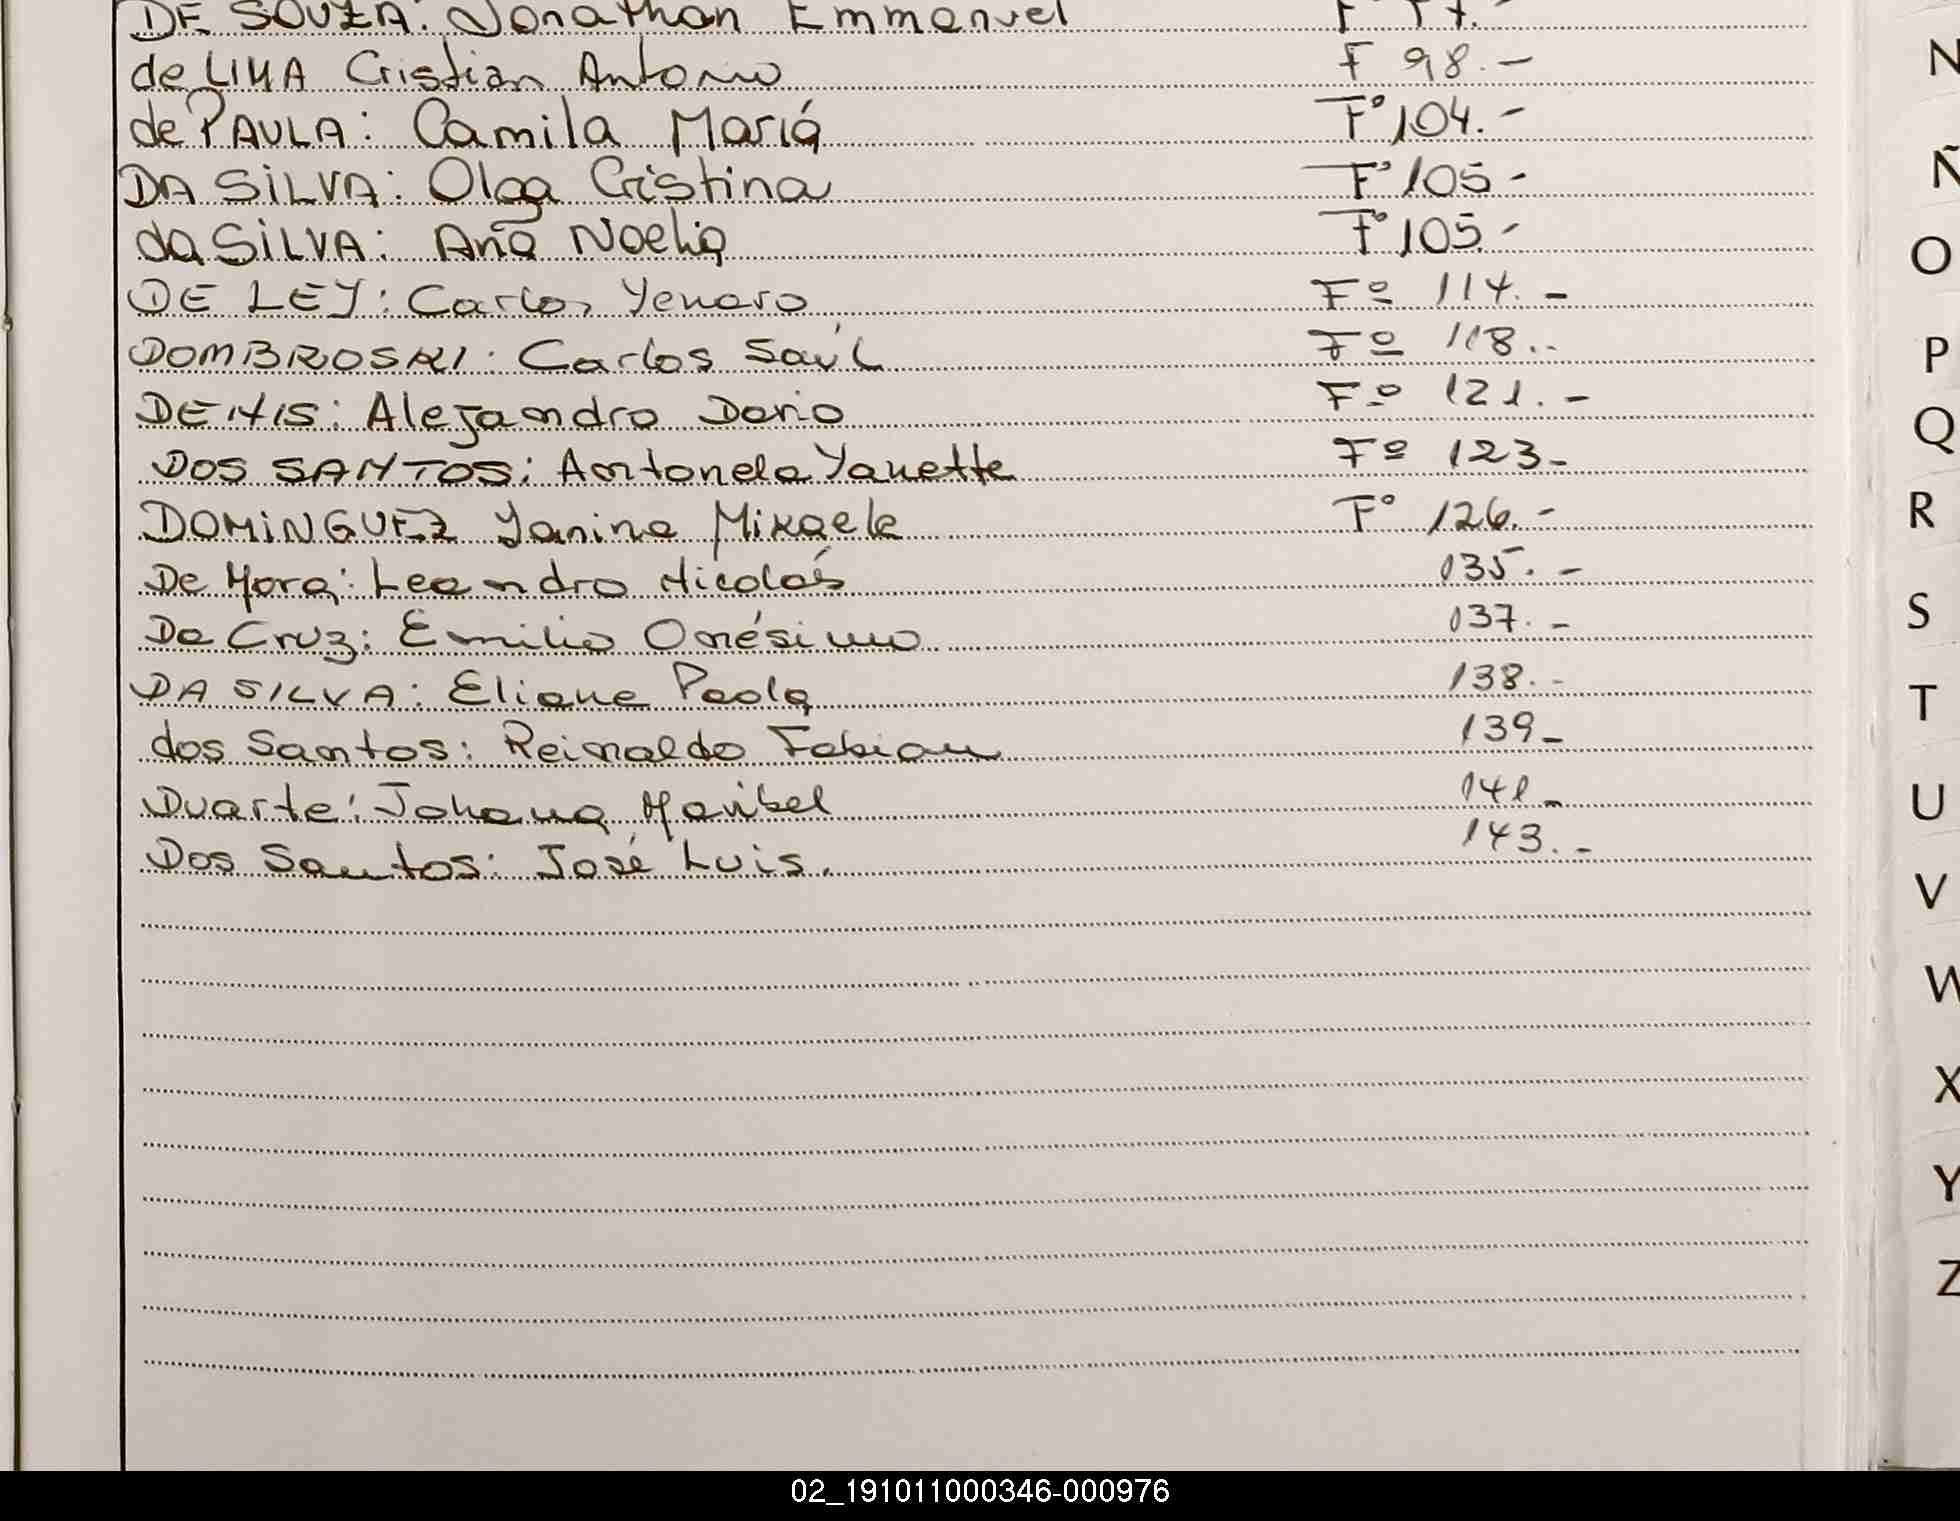 DE SOUZA: Jonathan Emmanuel
de LIMA Cristian Antonio F 98.-
de PAULA: Camila Mariá F° 104.-
DA SILVA: Olga Cristina F° 105-
da SILVA: Ana Noelia F° 105.-
DE LEY: Carlos Yenaro Fº 114.-
DOMBROSKI: Carlos Saúl Fº 118..
Alejandro Dario Fº 121.-
DOS SANTOS: Antonela Yanette Fº 123-
DOMINGUEZ Yanina Mikaela F° 126.-
De Mora: Leandro Nicolás 135.-
Da Cruz: Emilio Onésimo 137.-
DA SILVA: Eliane Paola 138.-
dos Santos: Reinaldo Fabian 139-
Duarte: Johana Maribel 141-
Dos Santos: José Luis. 143.-
N
Ñ
O
P
Q
R
S
T
U
V
W
X
Y
Z
02_191011000346-000976